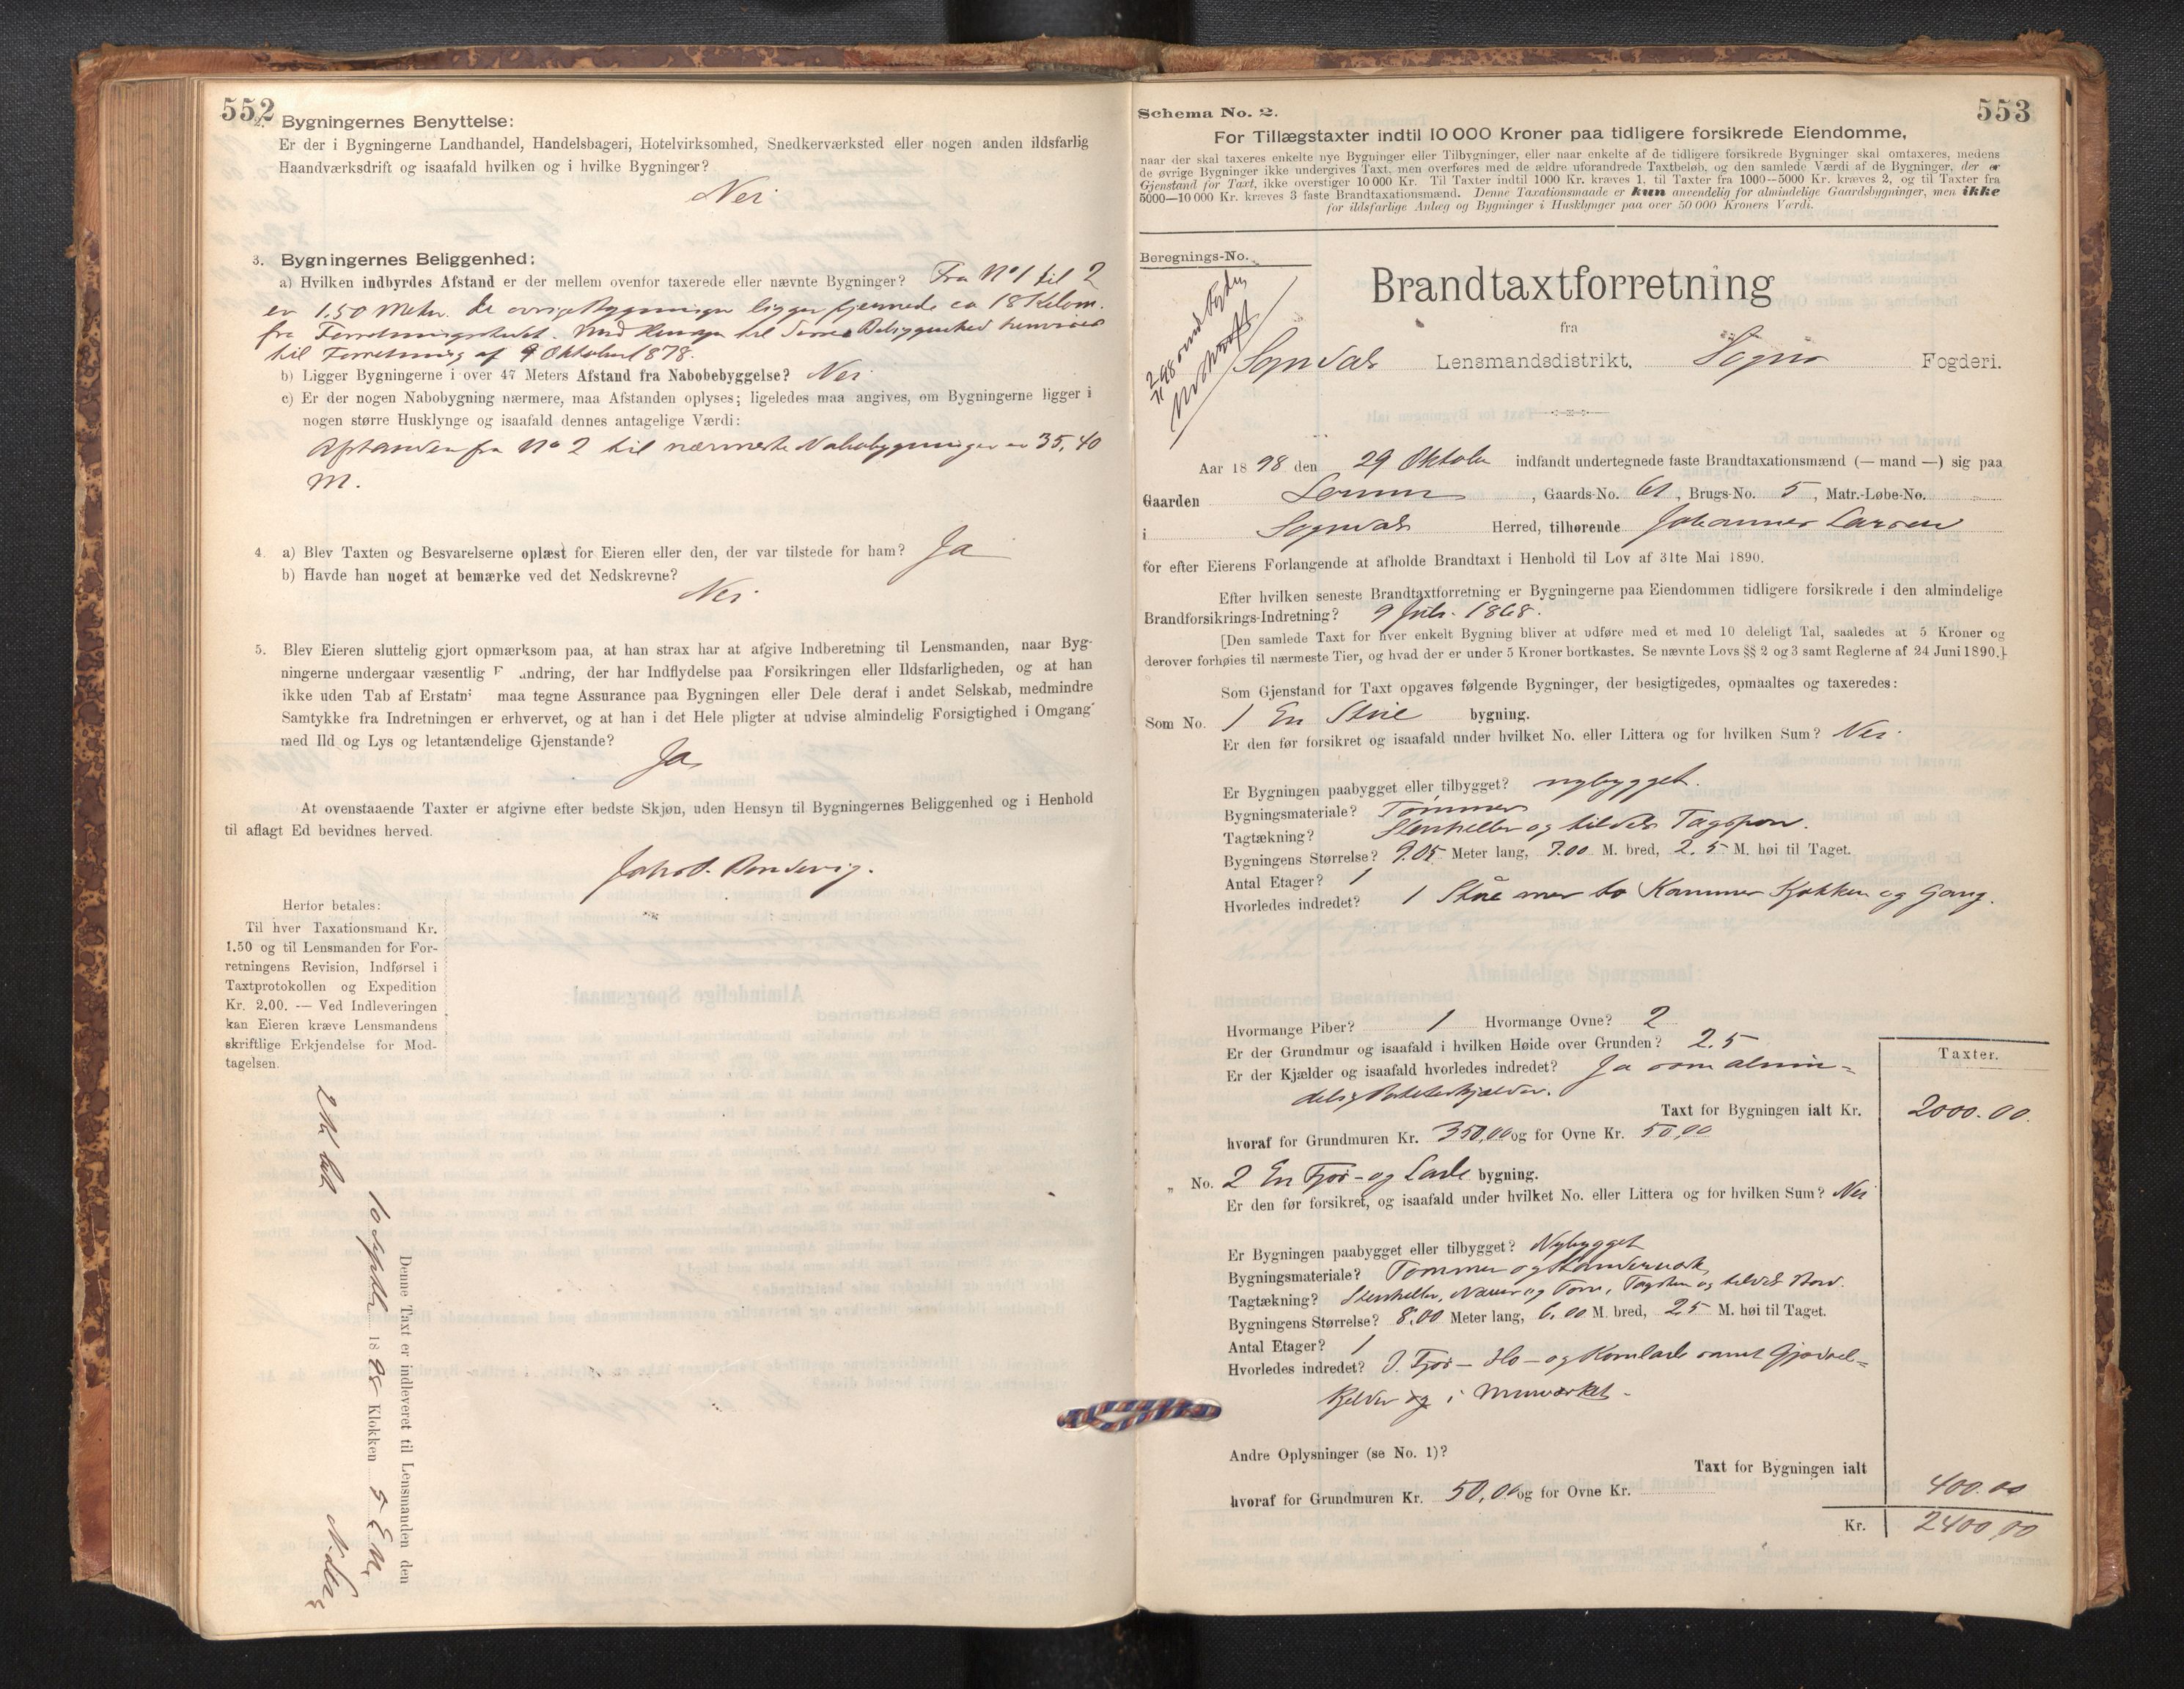 552
2. Bygningernes Benyttelse:
Er der i Bygningerne Landhandel, Handelsbageri, Hotelvirksomhed, Snedkerværksted eller nogen anden ildsfarlig
Haandværksdrift og isaafald hvilken og i hvilke Bygninger?
Nei
3. Bygningernes Beliggenhed:
a) Hvilken indbyrdes Afstand er der mellem ovenfor taxerede eller nævnte Bygninger? Fra No 1 til 2
er 1.50 Meter. De øvrige Bygninger ligger fjernede ca 18 Kilom.
fra Forretningsstedet. Med Hensyn til Beliggenhed henvises
til Forretning af 9 Oktober 1878.
b) Ligger Bygningerne i over 47 Meters Afstand fra Nabobebyggelse? Nei
c) Er der nogen Nabobygning nærmere, maa Afstanden oplyses; ligeledes maa angives, om Bygningerne ligger i
nogen større Husklynge og isaafald dennes antagelige Værdi:
Afstanden fra No 2 til nærmeste Nabobygninger er 35,40
M.
4. a) Blev Taxten og Besvarelserne oplæst for Eieren eller den, der var tilstede for ham? Ja
b) Havde han noget at bemærke ved det Nedskrevne?
Nei.
5. Blev Eieren sluttelig gjort opmærksom paa, at han strax har at afgive Indberetning til Lensmanden, naar Byg-
ningerne undergaar væsentlig F ndring, der har Indflydelse paa Forsikringen eller Ildsfarligheden, og at han
ikke uden Tab af Erstatn maa tegne Assurance paa Bygningen eller Dele deraf i andet Selskab, medmindre
Samtykke fra Indretningen er erhvervet, og at han i det Hele pligter at udvise almindelig Forsigtighed i Omgang
med Ild og Lys og letantændelige Gjenstande?
Ja
At ovenstaaende Taxter er afgivne efter bedste Skjøn, uden Hensyn til Bygningernes Beliggenhed og i Henhold
til aflagt Ed bevidnes herved.
Herfor betales:
Til hver Taxationsmand Kr.
1.50 og til Lensmanden for For-
retningens Revision, Indførsel i
Taxtprotokollen og Expedition
Kr. 2.00. — Ved Indleveringen
kan Eieren kræve Lensmandens
skriftlige Erkjendelse for Mod-
tagelsen.
Denne Taxt er indleveret til Lensmanden den
10 Septbr 1898 Klokken 5 E.M.
553
Schema No. 2.
For Tillægstaxter indtil 10 000 Kroner paa tidligere forsikrede Eiendomme,
naar der skal taxeres enkelte nye Bygninger eller Tilbygninger, eller naar enkelte af de tidligere forsikrede Bygninger skal omtaxeres, medens
de øvrige Bygninger ikke undergives Taxt, men overføres med de ældre uforandrede Taxtbeløb, og den samlede Værdi af de Bygninger, der er
Gjenstand for Taxt, ikke overstiger 10 000 Kr. Til Taxter indtil 1000 Kr. kræves 1, til Taxter fra 1000—5000 Kr. kræves 2, og til Taxter fra
5000—10 000 Kr. kræves 3 faste Brandtaxationsmænd. Denne Taxationsmaade er kun anvendelig for almindelige Gaardsbygninger, men ikke
for ildsfarlige Anlæg og Bygninger i Husklynger paa over 50 000 Kroners Værdi.
Beregnings-No.
Brandtaxtforretning
fra
Sogndal Lensmandsdistrikt, Sogns Fogderi.
Aar 1898 den 29 Oktober indfandt undertegnede faste Brandtaxationsmænd (— mand —) sig paa
Gaarden Sorum, Gaards-No. 61, Brugs-No. 5, Matr.-Løbe-No.
i Sogndal Herred, tilhørende Johannes Larsen
for efter Eierens Forlangende at afholde Brandtaxt i Henhold til Lov af 31te Mai 1890.
Efter hvilken seneste Brandtaxtforretning er Bygningerne paa Eiendommen tidligere forsikrede i den almindelige
Brandforsikrings-Indretning? 9 Juli 1868.
[Den samlede Taxt for hver enkelt Bygning bliver at udføre med et med 10 deleligt Tal, saaledes at 5 Kroner og
derover forhøies til nærmeste Tier, og hvad der er under 5 Kroner bortkastes. Se nævnte Lovs §§ 2 og 3 samt Reglerne af 24 Juni 1890.]
Som Gjenstand for Taxt opgaves følgende Bygninger, der besigtigedes, opmaaltes og taxeredes:
Som No. 1 En Stue bygning.
Er den før forsikret og isaafald under hvilket No. eller Littera og for hvilken Sum? Nei.
Er Bygningen paabygget eller tilbygget? nybygget.
Bygningsmateriale? Tømmer
Tagtækning? Stenheller og tildels Tagspon.
Bygningens Størrelse? 9.05 Meter lang, 7.00 M. bred, 2.5 M. høi til Taget.
Antal Etager? 1
Hvorledes indredet? 1 Stue med to Kammer Kjøkken og Gang.
Hvormange Piber? 1 Hvormange Ovne? 2
Er der Grundmur og isaafald i hvilken Høide over Grunden? 2.5
Er der Kjælder og isaafald hvorledes indredet? Ja som almin-
delig Poteteskjælder.
Taxter.
Taxt for Bygningen ialt Kr. 2000.00.
hvoraf for Grundmuren Kr. 350,00 og for Ovne Kr. 50,00
„ No. 2 En Fjøs- og Lade bygning.
Er den før forsikret, og isaafald under hvilket No. eller Littera og for hvilken Sum? Nei
Er Bygningen paabygget eller tilbygget? Nybygget
Bygningsmateriale? Tømmer og Standerværk
Tagtækning? Stenheller, Næver og Torv, Tagsten og tildels Bord.
Bygningens Størrelse? 8.00 Meter lang, 6.00 M. bred, 2,5 M. høi til Taget.
Antal Etager? 1
Hvorledes indredet? I Fjøs- Hø- og Kornlade samt Gjødsel-
kjelder i Murværket.
Andre Oplysninger (se No. 1)?
Taxt for Bygningen ialt 400.00
hvoraf for Grundmuren Kr. 50,00 og for Ovne Kr.
Kr. 2400,00